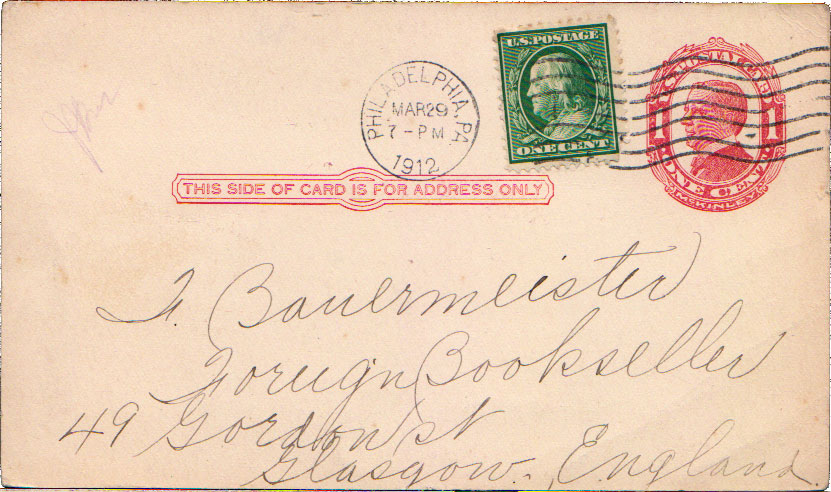 U.S. POSTAGE
ONE CENT
PHILADELPHIA, PA
MAR 29
7 - PM
1912
U.S. POSTAGE
1 1
ONE CENT
McKINLEY
THIS SIDE OF CARD IS FOR ADDRESS ONLY
F. Bauermeister
Foreign Bookseller
49 Gordon St
Glasgow, England